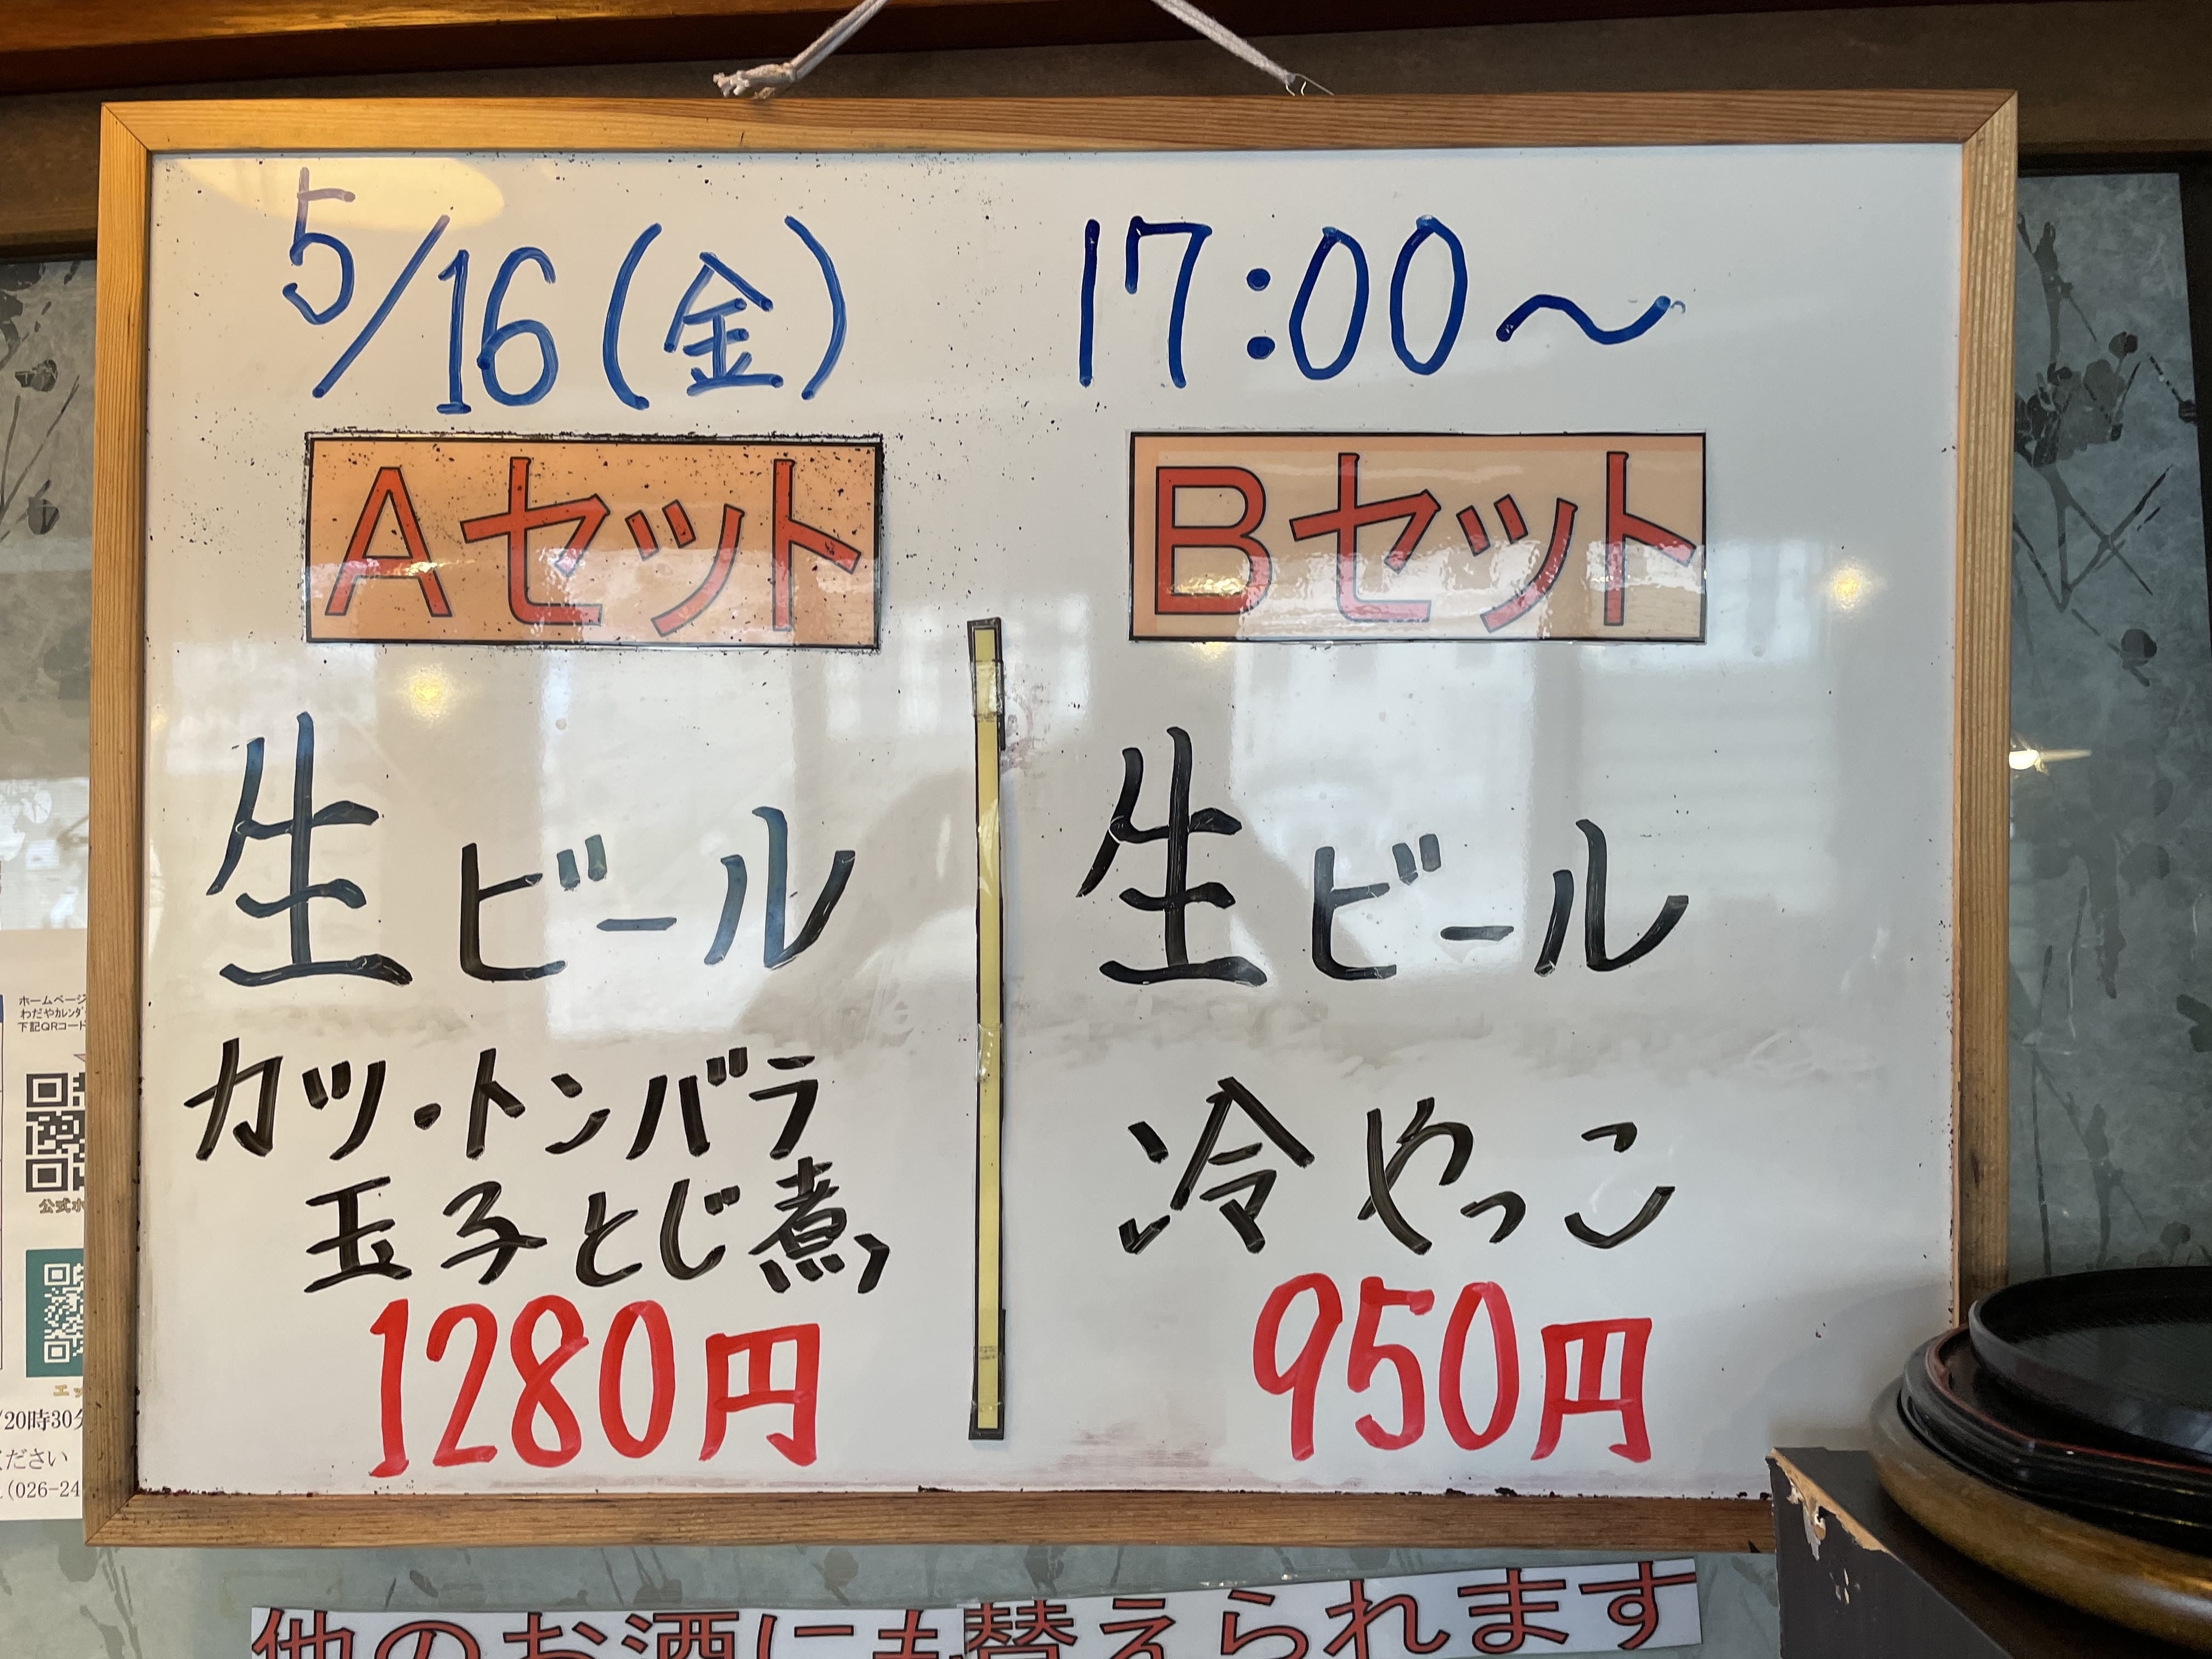 5/16(金) 17:00～
Aセット
生ビール
カツ・トンバラ
玉子とじ煮
1280円
Bセット
生ビール
冷やっこ
950円
ホームページ
わだやカレンダ
下記QRコード
公式ホ
エッ
/20時30分
ください
(026-24
他のお酒にも替えられます